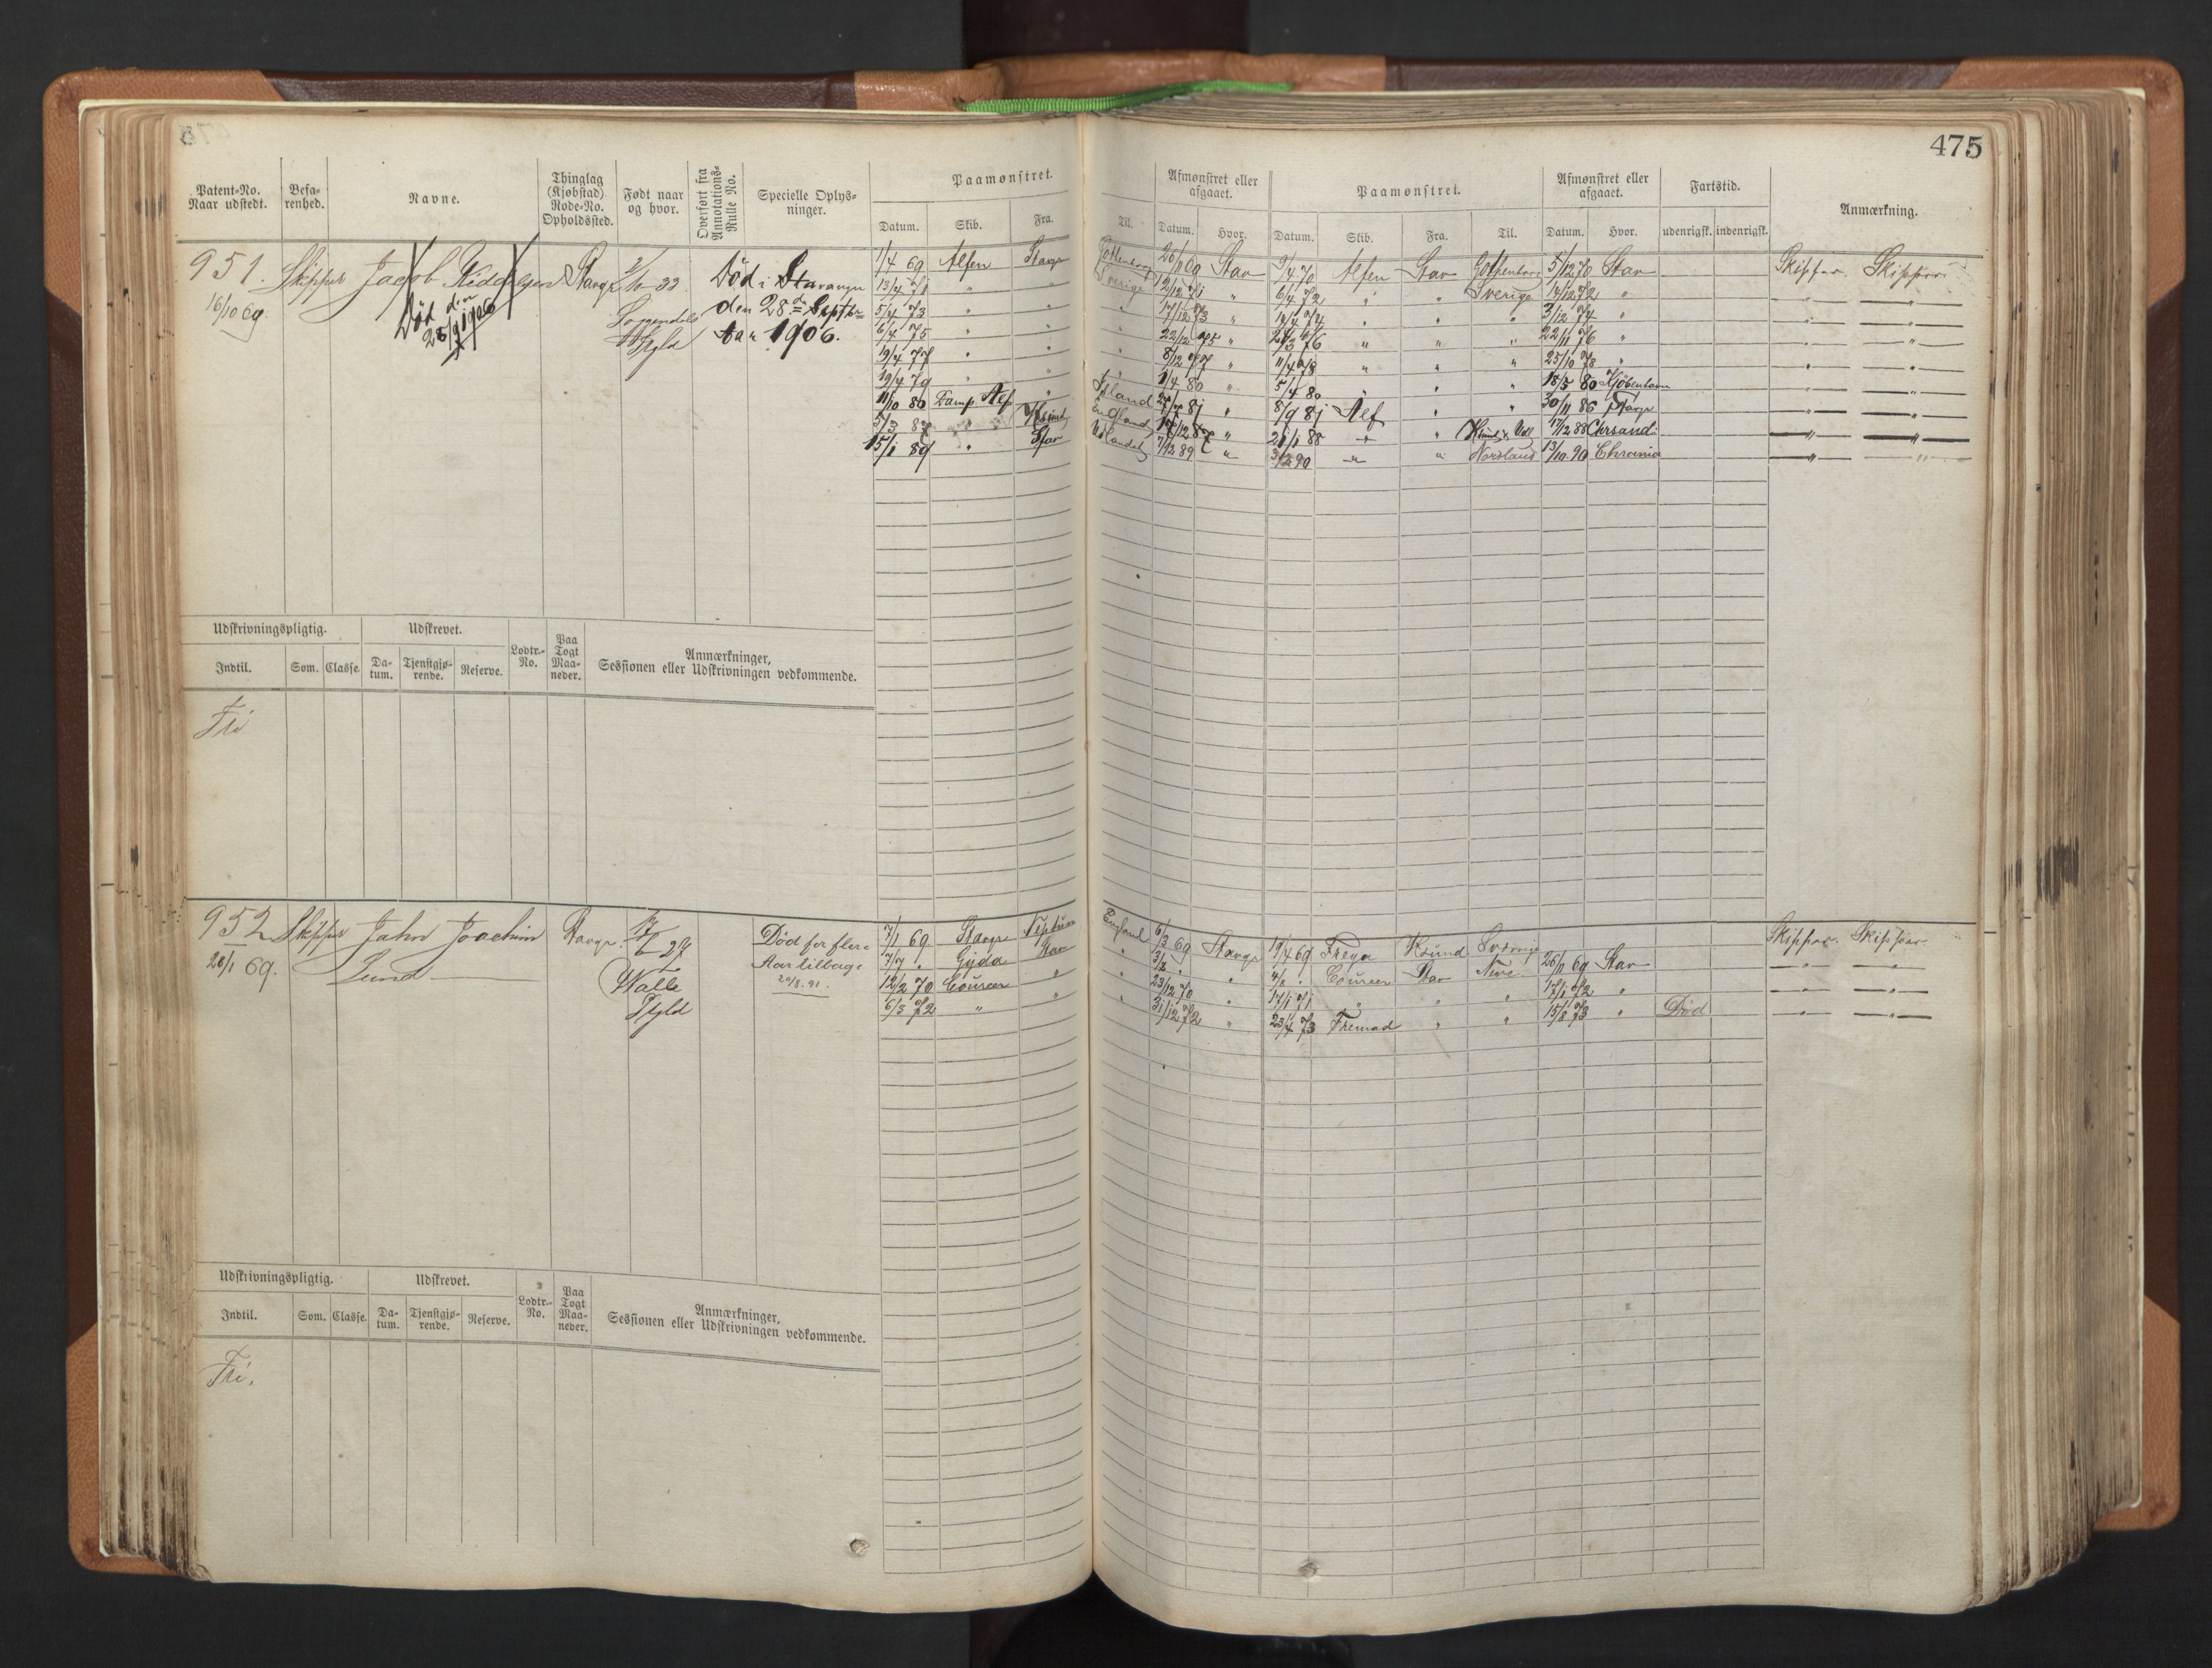 475
Patent-No. Naar udstedt.
Befa-renhed.
Navne.
Thinglag (Kjøbstad) Rode-No. Opholdssted.
Født naar og hvor.
Overført fra Annotations-Rulle No.
Specielle Oplys-ninger.
Paamønstret.
Datum. Skib. Fra. Til.
Afmønstret eller afgaaet.
Datum. Hvor.
Paamønstret.
Datum. Skib. Fra. Til.
Afmønstret eller afgaaet.
Datum. Hvor.
Fartstid.
udenrigsk. indenrigsk.
Anmærkning.
951. Skipper Jacob Stavgr
16/10 69
Død den 28/9 1906
Hfyld
Død i Stavanger
den 28de Septbr
Aar 1906.
1/4 69 Alfen Stavgr Gothenborg 26/11 69 Stav 9/4 70 Alfen Stav Gothenborg 5/12 70 Stav Skipper. Skipper
13/4 71 " " Sverige 12/12 71 " 6/4 72 " " Sverige 14/12 72 " " "
5/4 73 " " " 17/12 73 " 14/4 74 " " " 3/12 74 " " "
6/4 75 " " " 22/12 75 " 76 " " " 22/11 76 " " "
19/4 77 " " " 8/12 77 " 11/4 78 " " " 25/10 78 " " "
19/4 79 " " " 1/4 80 " 5/4 80 " " " 18/5 80 Kjøbenhavn " "
11/10 80 Damp Alf " Island 81 " 8/9 81 Alf " " 30/11 86 Stavgr " "
5/3 87 " England 12 87 " 21/1 88 " " 17/12 88 Chrsand " "
15/1 89 " Stav Udlandet 7/12 89 " 3/2 90 " " Nordland 13/10 90 Chrania " "
Udskrivningspligtig.
Udskrevet.
Indtil. Som. Classe. Da-tum. Tjenstgjø-rende. Reserve. Lodtr.-No. Paa Togt Maa-neder.
Anmærkninger, Sessionen eller Udskrivningen vedkommende.
Fri
952 Skipper Jahn Joachim Stavgr. 27
28/1 69. Lund
Walle
Hfyld
Død for flere
Aar tilbage
20/8. 91.
7/1 69 Stavgr Neptun England 6/3 69 Stavgr 19/4 69 Freya Ksund Sverrige Skipper. Skipper
7/7 " Gyda Stav " " " 4/8 " Coureer Stav Newc. 26/11 69 Stav " "
12/2 70 Coureer " " 23/12 70 " 17/1 71 " " " 17/1 72 " " "
6/3 72 " " " 31/12 72 " 23/4 73 Fremad " " 15/8 73 " Død " "
Udskrivningspligtig.
Udskrevet.
Indtil. Som. Classe. Da-tum. Tjenstgjø-rende. Reserve. Lodtr.-No. Paa Togt Maa-neder.
Anmærkninger, Sessionen eller Udskrivningen vedkommende.
Fri.